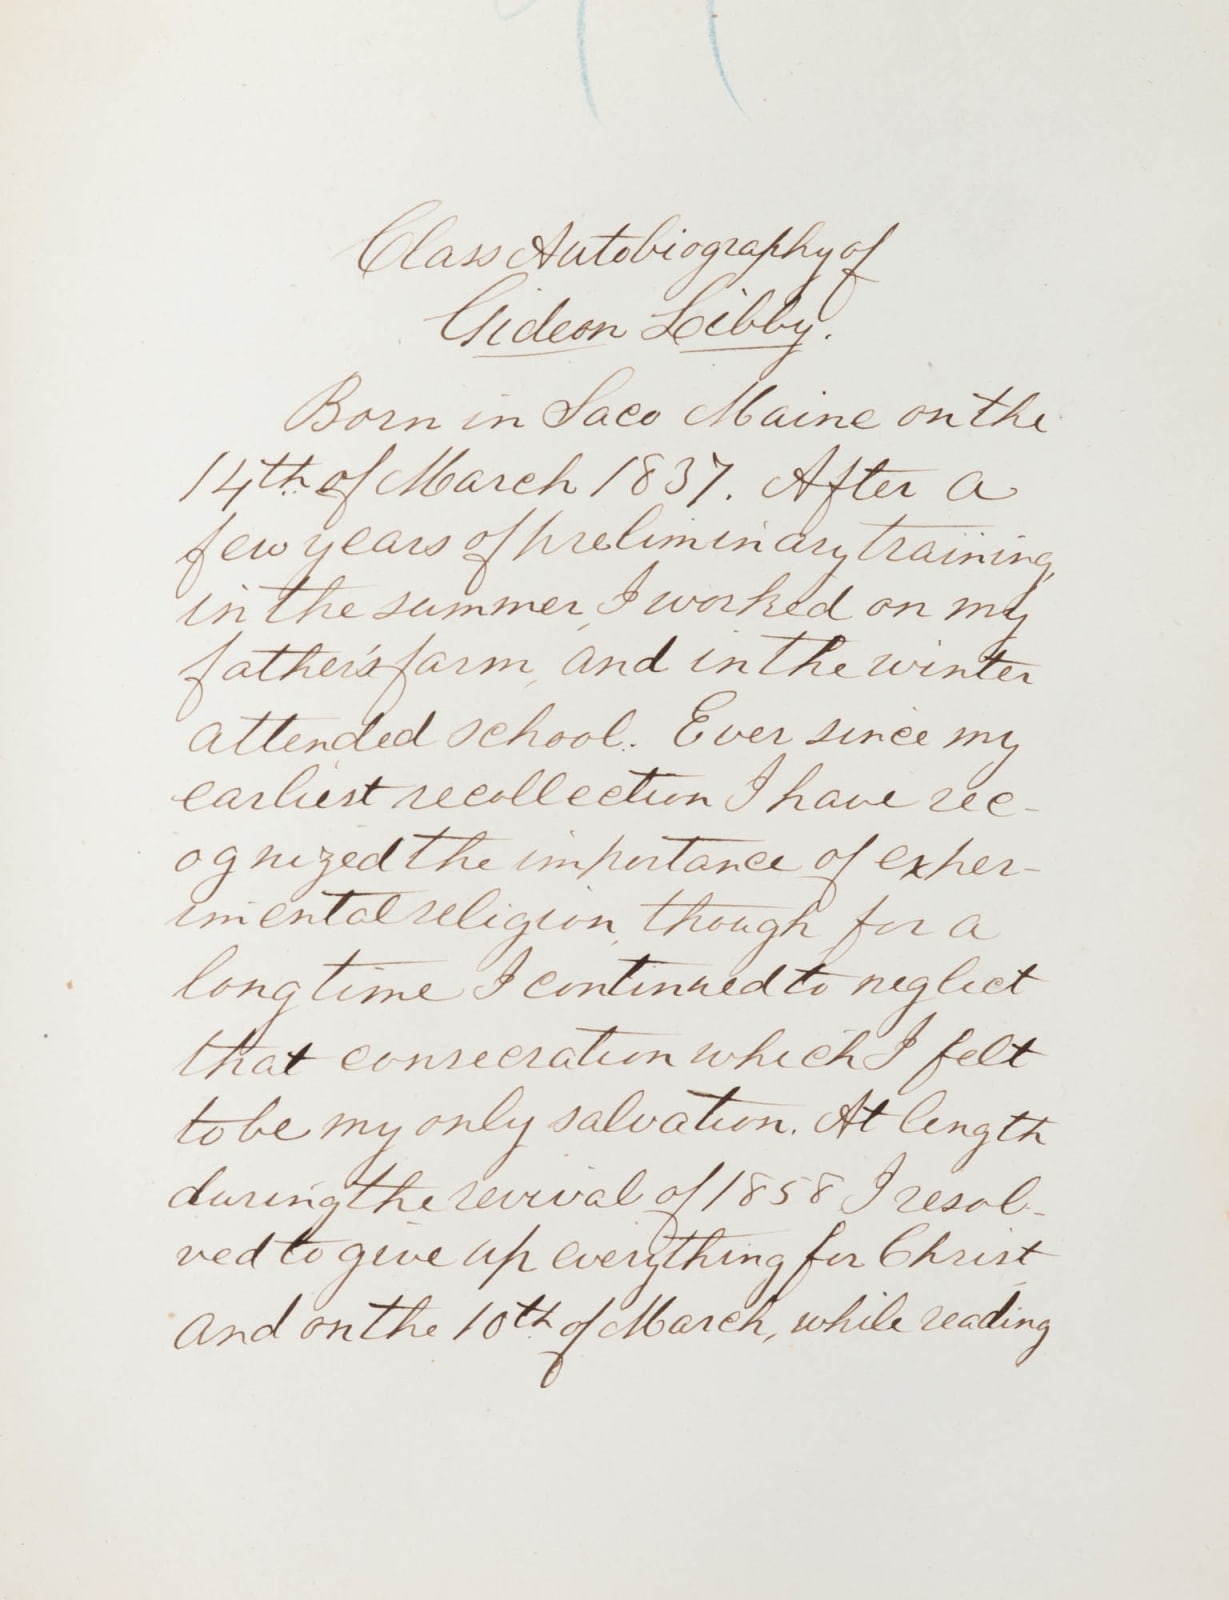 Class Autobiography of
Gideon Libby.
Born in Saco Maine on the
14th of March 1837. After a
few years of preliminary training,
in the summer, I worked on my
father's farm, and in the winter
attended school. Ever since my
earliest recollection I have rec-
ognized the importance of exper-
imental religion, though for a
long time I continued to neglect
that consecration which I felt
to be my only salvation. At length
during the revival of 1858 I resol-
ved to give up everything for Christ,
and on the 10th of March, while reading